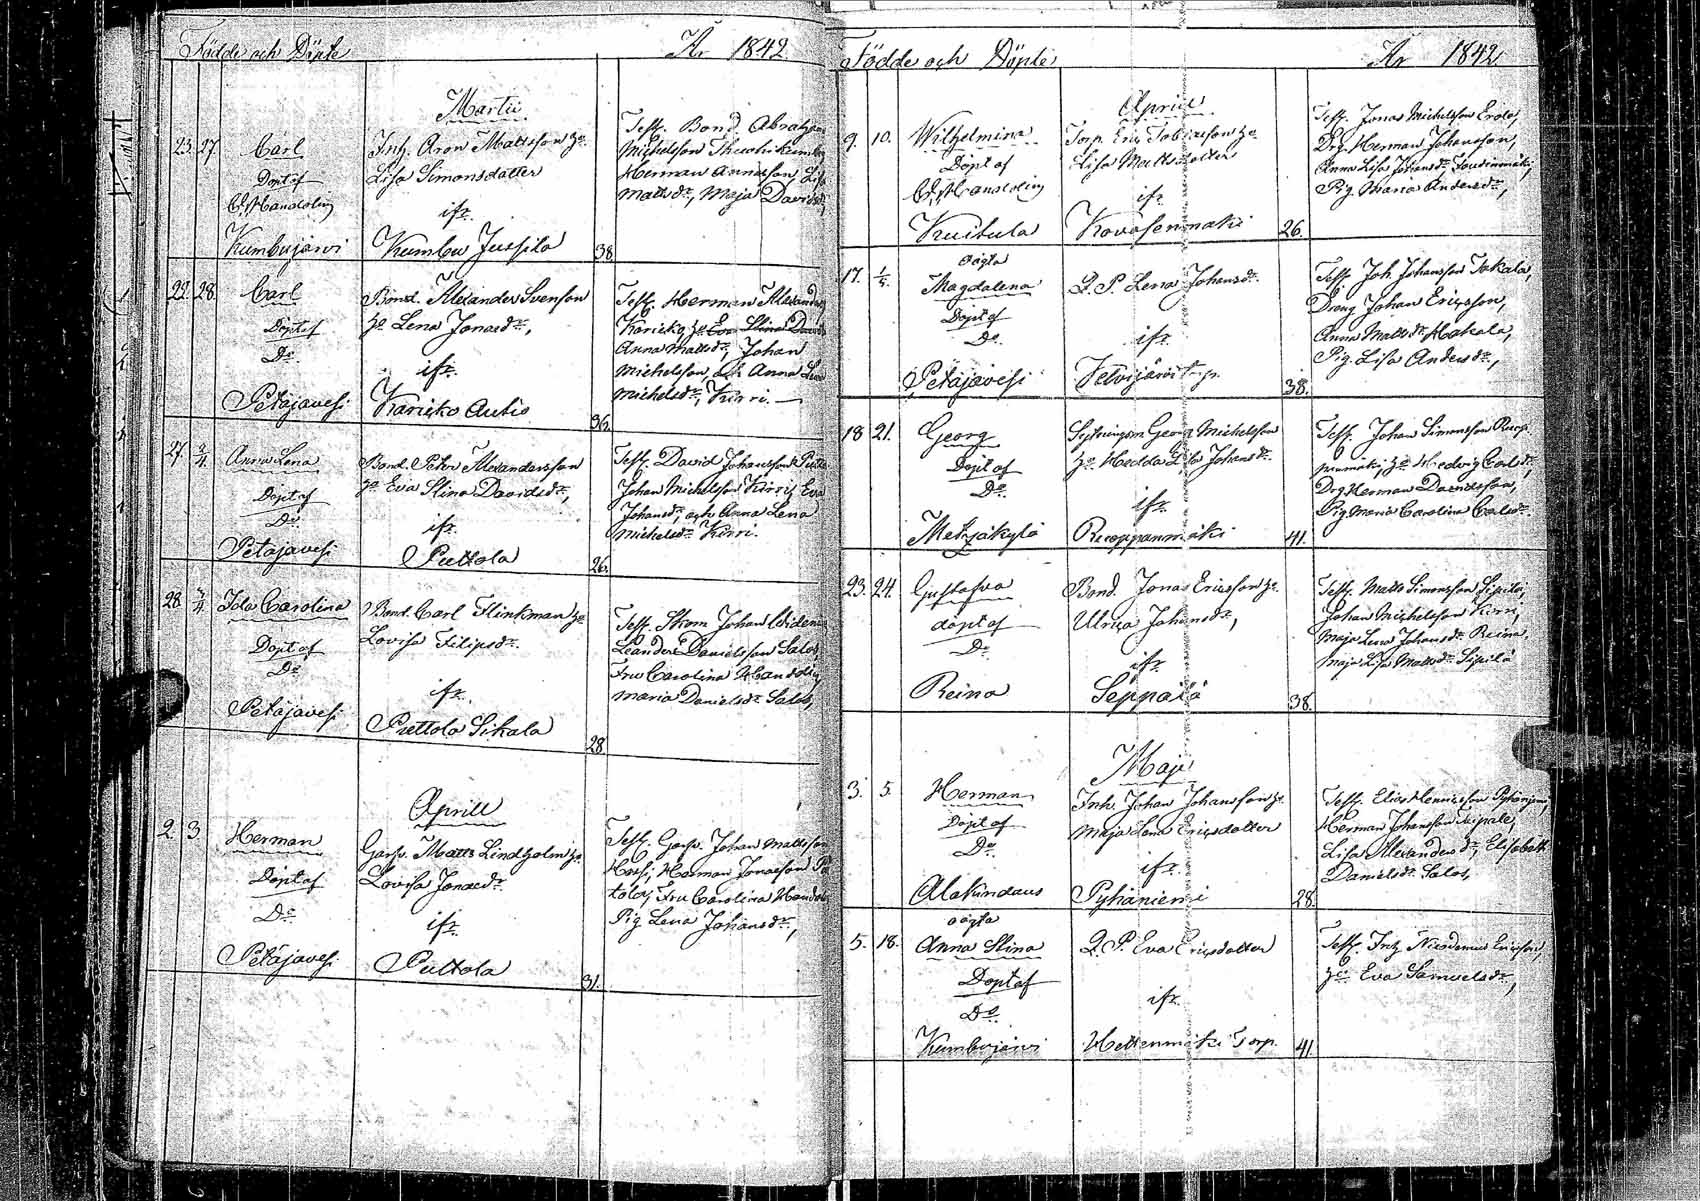 Födde och Döpte År 1842
Martii
23. 27. Carl
Döpt af
C. H. Handolin
Kumbujärvi
Inh. Aron Mattsson h:o
Lisa Simonsdatter
ifr.
Kumbu Jussila
38
Test. Bond. Abraham
Michelson
Herman Annasson Lisa
Mattsdr, Maja Davidsdr,
22. 28. Carl
Döpt af
Do
Petäjävesi
Bond. Alexander Svenson
h:o Lena Jonasdr,
ifr.
Karikko Autio
36.
Test. Herman Alexanders
Karikko, h:o Eva Stina Davids
Anna Mattsdr, Johan
Michelson, och Anna Lena
Michelsdr, Kirri.
27. 2/4. Anna Lena
Döpt af
Do
Petäjävesi
Bond. Petr Alexandersson
h:o Eva Stina Davidsdr,
ifr.
Puttola
26.
Test. David Johansson Putto
Johan Michelson Kirri, Eva
Johansdr, och Anna Lena
Michelsdr Kirri.
28. 3/4. Ida Carolina
Döpt af
Do
Petäjävesi
Bond. Carl Flinkman h:o
Lovisa Filipsdr.
ifr.
Puttola Sikala
28.
Test. Skom Johan Widen
Leander Danielsson Salos,
Fru Carolina Handolin,
Maria Danielsdr Salos,
Aprill
2. 3. Herman
Döpt af
Do
Petäjävesi
Garfv. Matts Lindholm h:o
Lovisa Jonasdr
ifr.
Puttola
31.
Test. Garfv. Johan Mattsson
Herman Jonasson
Fru Carolina Handol
Pig Lena Johansdr,
Födde och Döpte År 1842
April
9. 10. Wilhelmina
Döpt af
C. H. Handolin
Kuitula
Torp. Eric Tobiasson h:o
Lisa Mattsdotter
ifr.
Kovasenmäki
26.
Test. Jonas Michelsson Erola,
Drg. Herman Johansson,
Anna Lisa Johansdr
Pig. Maria Andersdr,
17. 1/5. oägta
Magdalena
Döpt af
Do
Petäjävesi
Q. P. Lena Johansdr.
ifr.
38.
Test. Joh. Johansson Tokala,
Dreng Johan Ericsson,
Anna Mattsdr Hakala,
Pig. Lisa Andersdr,
18 21. Georg
Döpt af
Do
Metzäkylä
Georg Michelsson
h:o Hedda Lisa Johansdr.
ifr.
Ruoppanmäki
41.
Test. Johan Simonsson Ruop
panmäki, h:o Hedvig Carlsdr,
Drg Herman Davidsson,
Pig. Maria Carolina Carlsdr
23. 24. Gustafva
döpt af
Do
Reina
Bond. Jonas Ericsson h:o
Ulrica Johansdr,
ifr.
Seppälä
38.
Test. Matts Simonsson Sipilä,
Johan Michelsson Kirri,
Maja Lena Johansdr Reina,
Maja Lisa Mattsdr Sipilä
Maji
3. 5. Herman
Döpt af
Do
Alakundaus
Inh. Johan Johansson h:o
Maja Lena Ericsdotter
ifr.
Pyhäniemi
28.
Test. Elias Henricsson Pyhäniemi,
Herman Johansson
Lisa Alexandersdr, Elisabeth
Danielsdr Salos,
5. 18. oägta
Anna Stina
Döpt af
Do
Kumbujärvi
Q. P. Eva Ericsdotter
ifr.
Hettenmäki Torp.
41.
Test. Inh. Nicodemus Ericson,
h:o Eva Samuelsdr,